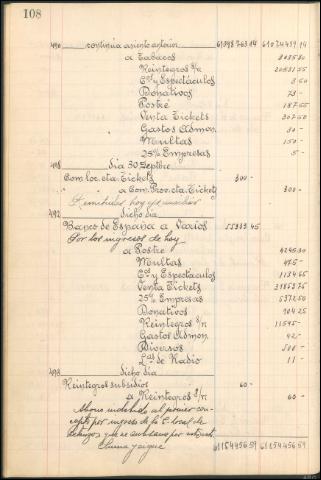 108
490 continúa asiento anterior 61098763'14 61074439'14
a Tabacos
Reintegros s/c
Cas y Espectáculos 3'50
Donativos 73 -
Postre 187'55
Venta Tickets
Gastos Admon. 30 -
Multas 150 -
25% Empresas 5 -
491 día 30 Septbre
Com. loc. cta. Tickets 300 -
a Com. Prov. cta. Tickets 300 -
492 dicho día
Banco de España a Varios 55393'45
Por los ingresos de hoy
a Postre
Multas 475 -
Cas y Espectáculos 1134'65
Venta Tickets
25% Empresas
Donativos
Reintegros s/n 11595 -
Gastos Admon 42 -
Diversos 500 -
Las de Radio 11 -
493 dicho día
Reintegros subsidios 60 -
a Reintegros s/n 60 -
Abono indebido al primer con-
cepto por ingreso de la C. local de
y que se subsana por este asto.
Suma y sigue 61154456'59 61154456'59